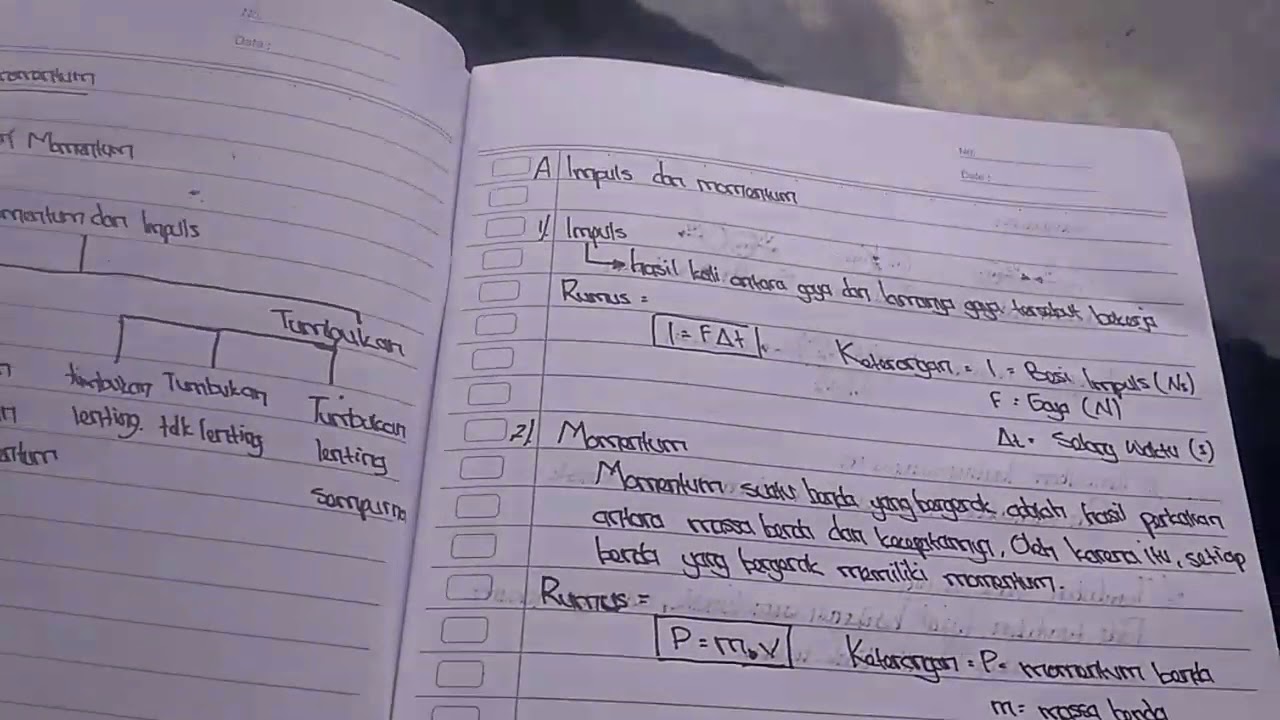 No.
Date :
Momentum
dan Impuls
Tumbukan
tumbukan Tumbukan Tumbukan
lenting. tdk lenting lenting
sempurna
No:
Date :
A Impuls dan momentum
1/ Impuls
hasil kali antara gaya dan lamanya gaya tersebut bekerja
Rumus =
I = F Δt
Keterangan = I = Besi Impuls (Ns)
F = Gaya (N)
Δt = Selang waktu (s)
2/ Momentum
Momentum suatu benda yang bergerak adalah hasil perkalian
antara massa benda dan kecepatannya, Oleh karena itu, setiap
benda yang bergerak memiliki momentum.
Rumus =
P = m. V
Keterangan = P = momentum benda
m = massa benda